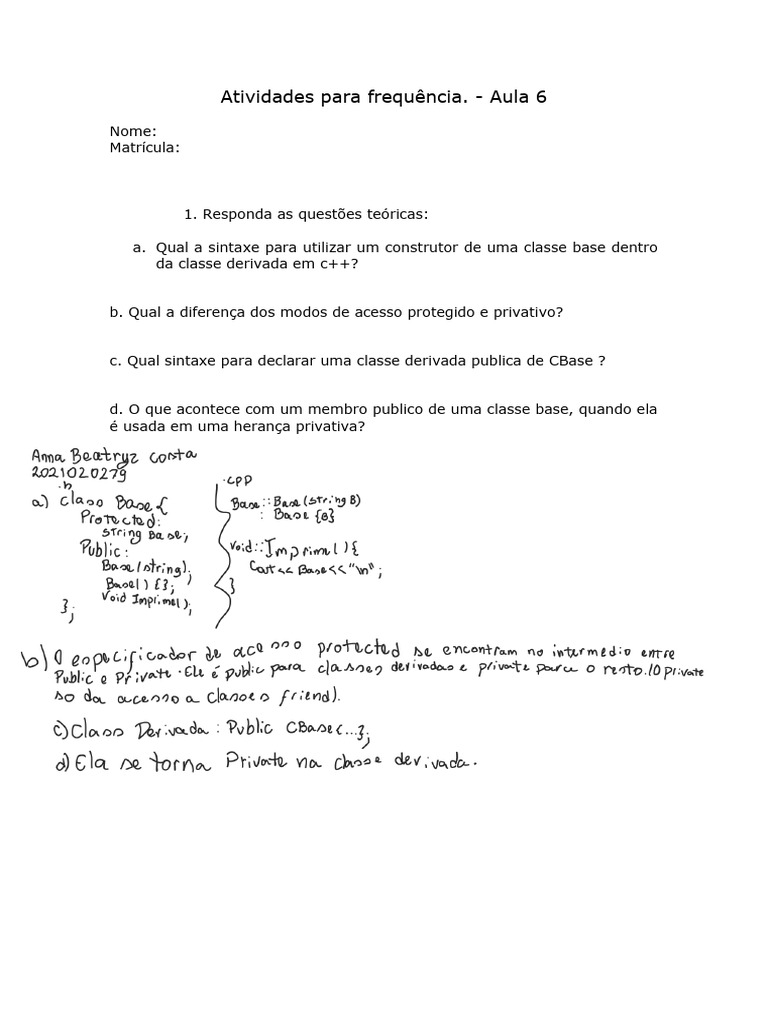 Atividades para frequência. - Aula 6
Nome:
Matrícula:
1. Responda as questões teóricas:
a. Qual a sintaxe para utilizar um construtor de uma classe base dentro
da classe derivada em c++?
b. Qual a diferença dos modos de acesso protegido e privativo?
c. Qual sintaxe para declarar uma classe derivada publica de CBase ?
d. O que acontece com um membro publico de uma classe base, quando ela
é usada em uma herança privativa?
Anna Beatryz Costa
2021020279
.h
a) Class Base{
Protected:
string Base;
Public:
Base(string);
Base() {};
Void Imprime();
};
.CPP
Base::Base(string B)
: Base {B}
Void::Imprime(){
Cout<< Base<<"\n";
}
b) O especificador de acesso protected se encontram no intermedio entre
Public e Private. Ele é public para classes derivadas e private para o resto. (O private
so da acesso a classes friend).
c) Class Derivada : Public CBase{...};
d) Ela se torna Private na classe derivada.